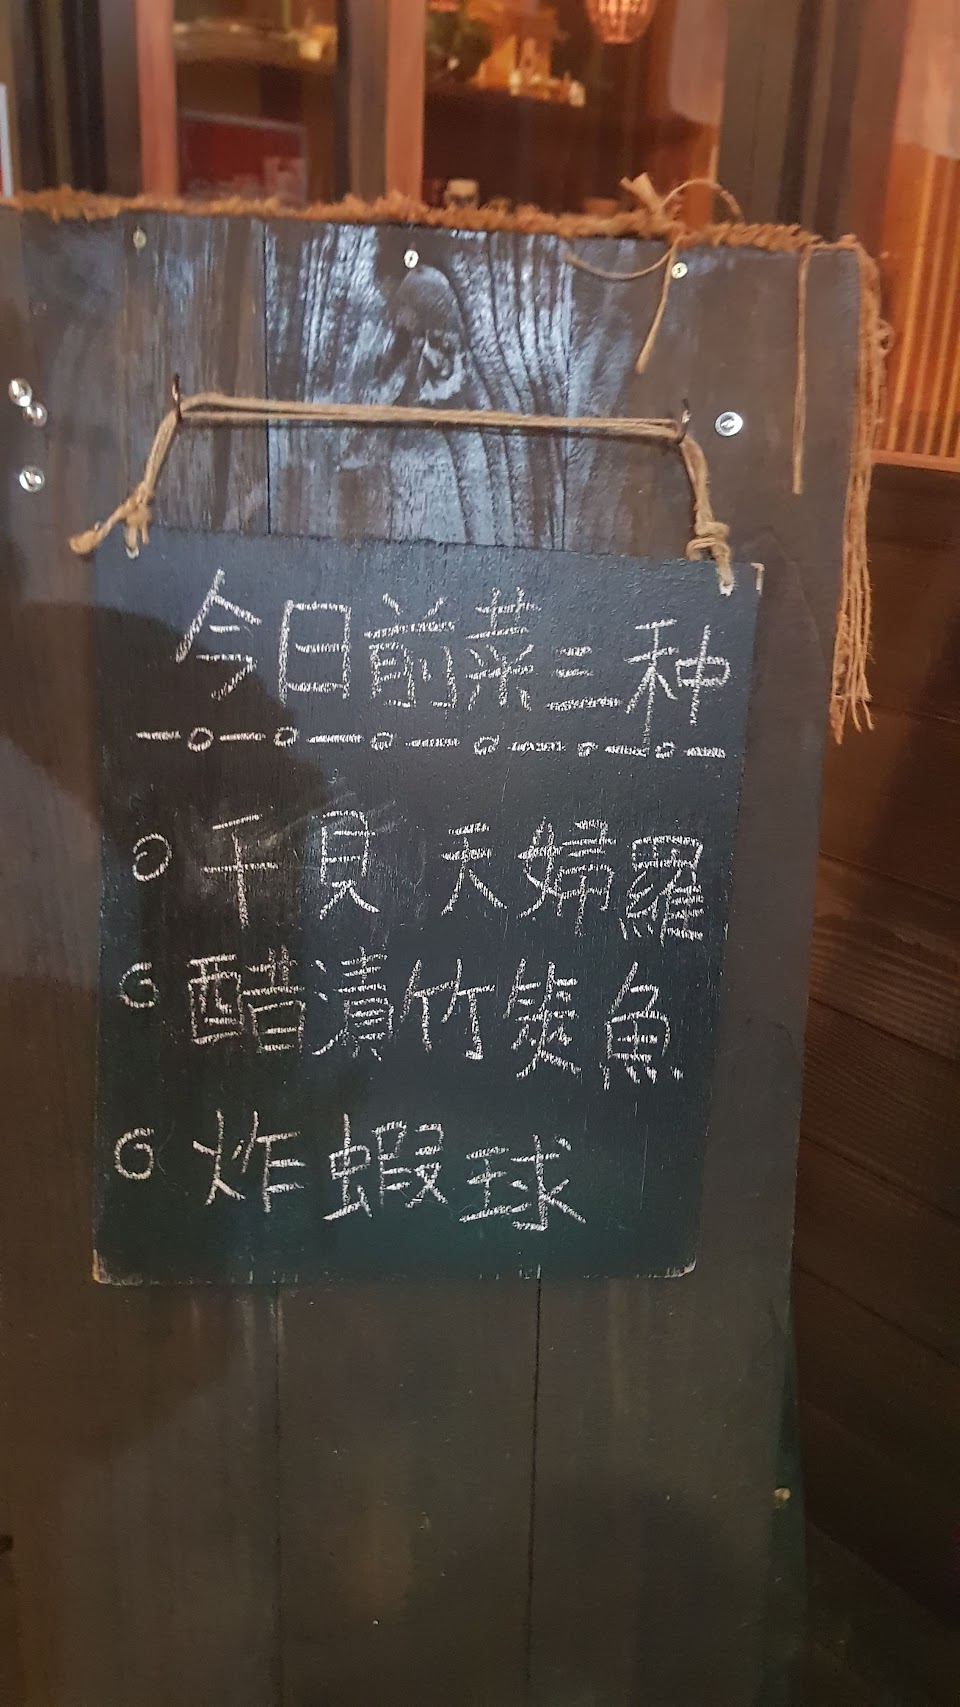 今日前菜三种
干貝 天婦羅
醋漬竹筴魚
炸蝦球